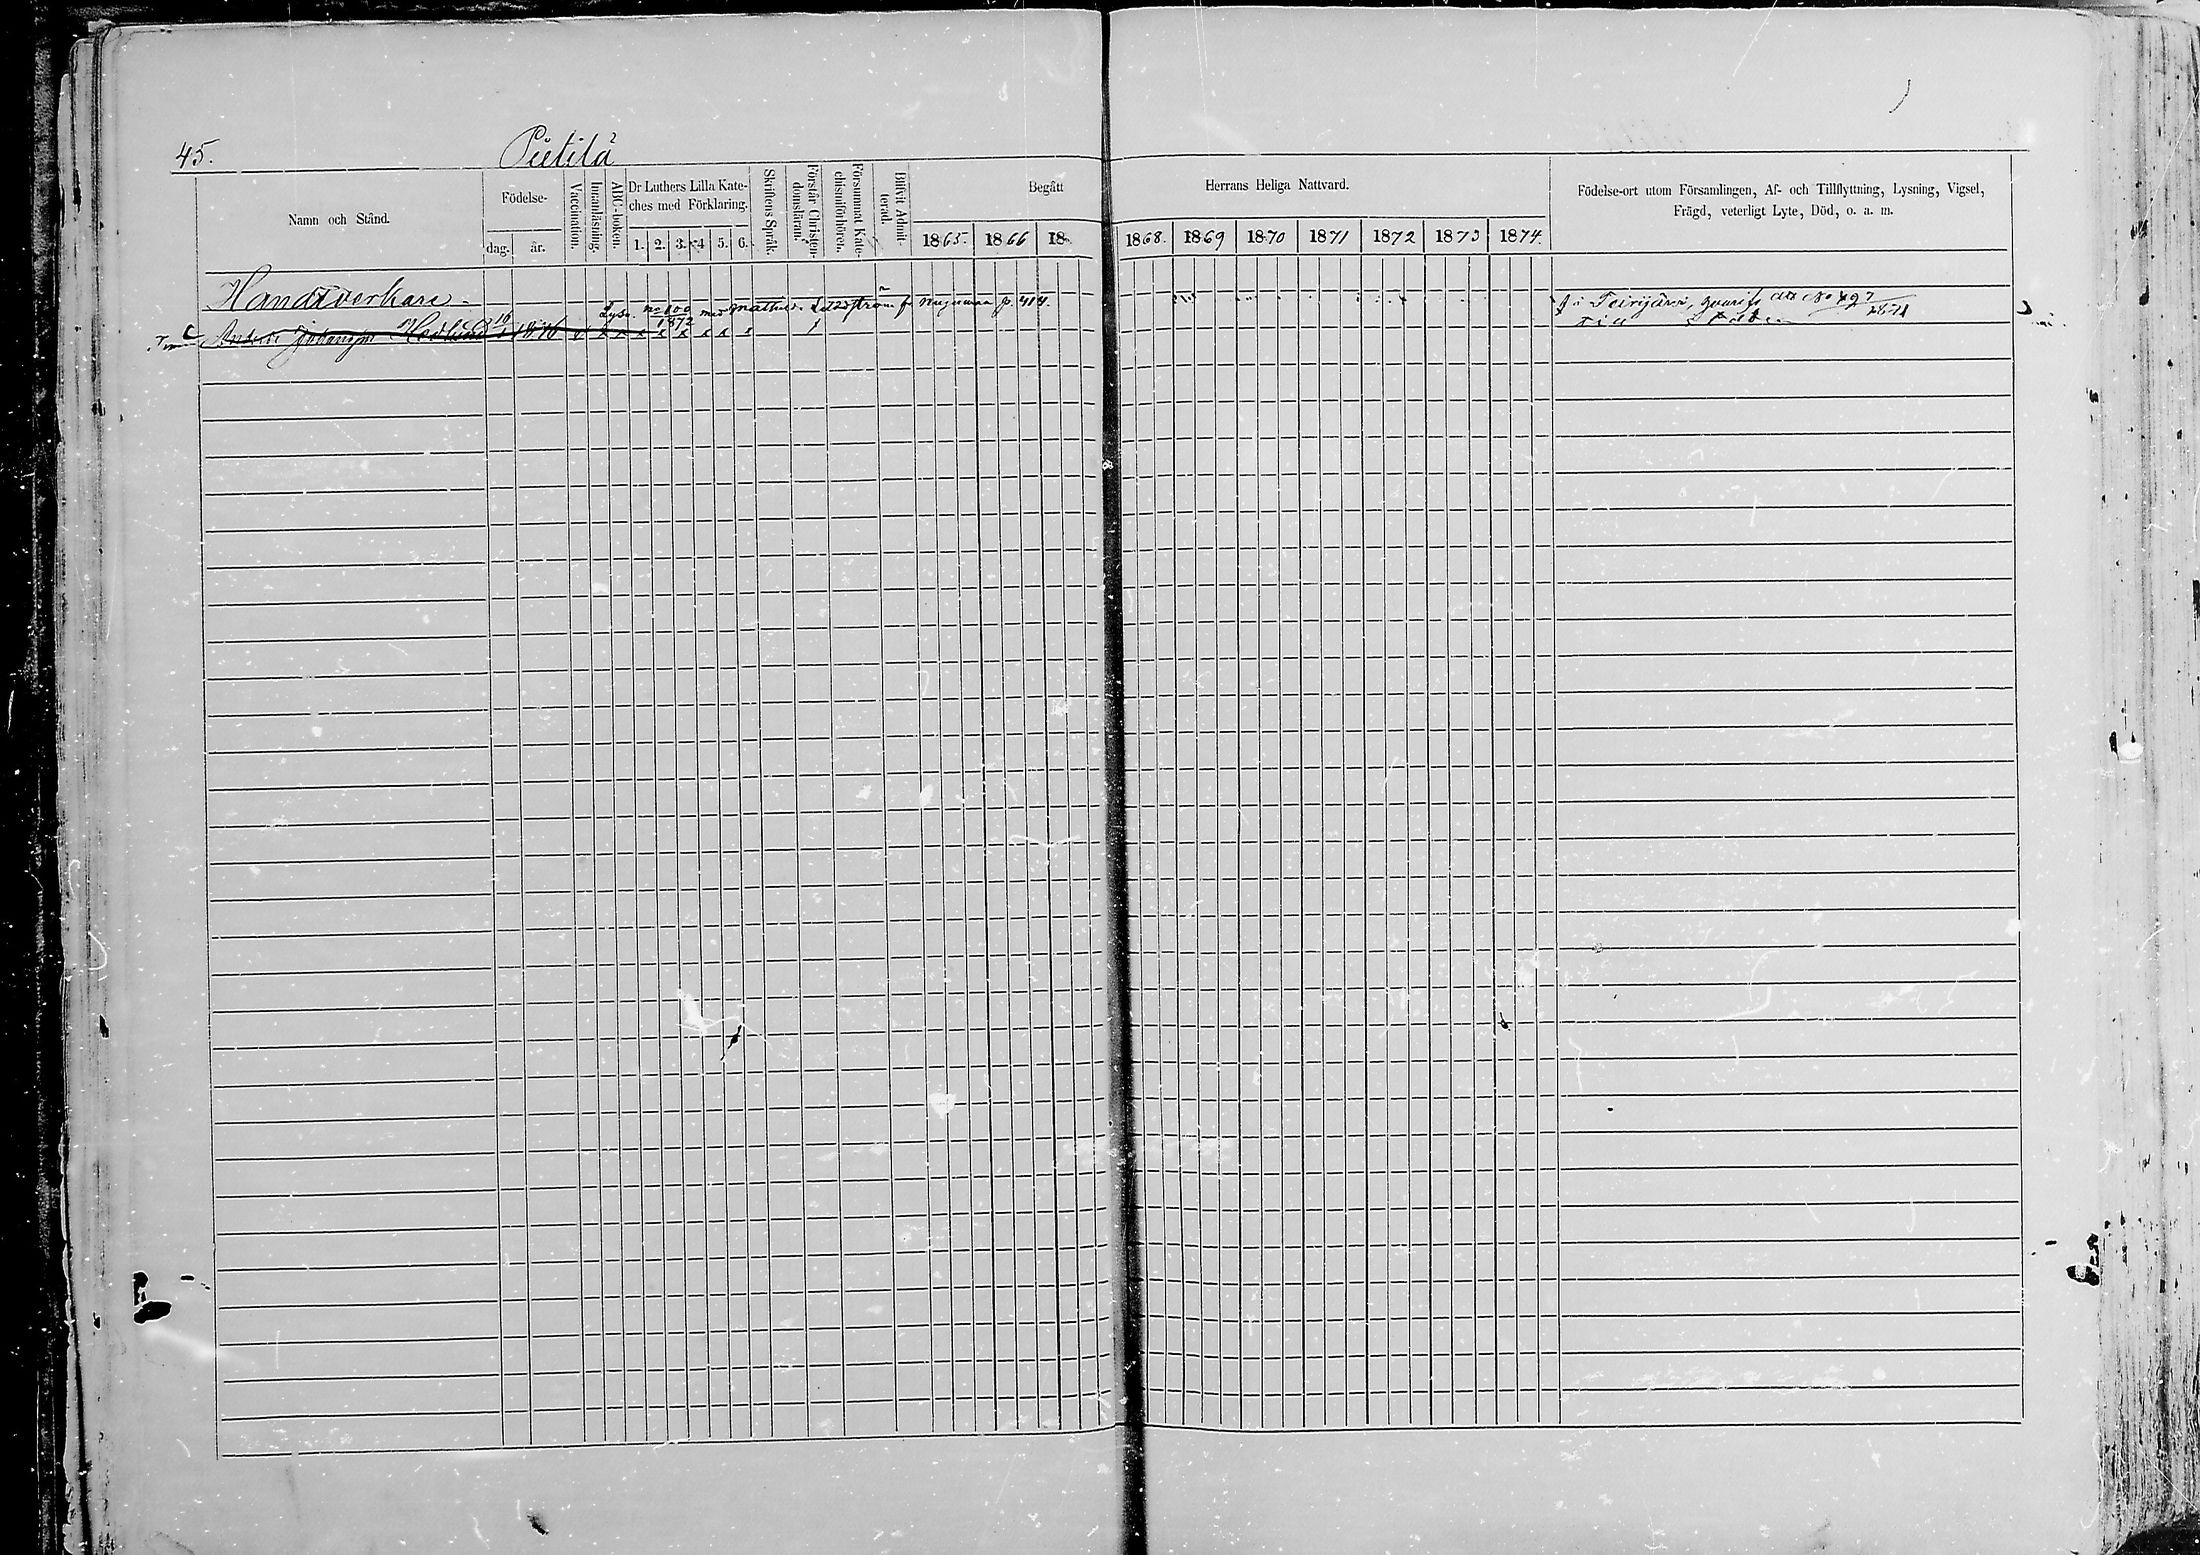 45. Pietilä
Namn och Stånd.
Födelse-
dag. år.
Vaccination.
Innanläsning.
ABC-boken.
Dr Luthers Lilla Kate-
ches med Förklaring.
1. 2. 3. 4 5. 6.
Skriftens Språk.
Förstår Christen-
domsläran.
Försummat Kate-
chismiförhören.
Blifvit Admit-
terad.
Begått Herrans Heliga Nattvard.
1865. 1866 18 1868. 1869 1870 1871 1872 1873 1874.
Födelse-ort utom Församlingen, Af- och Tillflyttning, Lysning, Vigsel,
Frägd, veterligt Lyte, Död, o. a. m.
Handtverkare.
Lysn. No 100 1872 med p. 414.
Anders Hedlund 1846